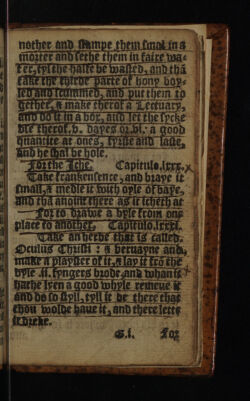 nother and stampe them smal in a
morter and sethe them in faire wa-
ter, tyl the halfe be wasted, and thã
take the thirde parte of hony boy-
led and scummed, and put them to
gether, & make therof a Lectuary,
and do it in a box, and let the sycke
ete therof .v. dayes or .vi. a good
quantite at ones, fyrste and laste,
and he shal be hole.
For the Iche. Capitulo.lxxx.
Take frankensence, and braye it
small, & medle it with oyle of baye,
and thã anoint there as it itcheth at
For to drawe a byle from one
place to another. Capitulo.lxxxi.
Take an herbe that is called
Oculus Christi: & beruayne and
make a playster of it, & lay it frõ the
byle .ii. fyngers brode, and whan it
hathe lyen a good whyle remeue it
and do so styll, tyll it be there that
thou wolde haue it, and there lette
it breke.
G.i. For